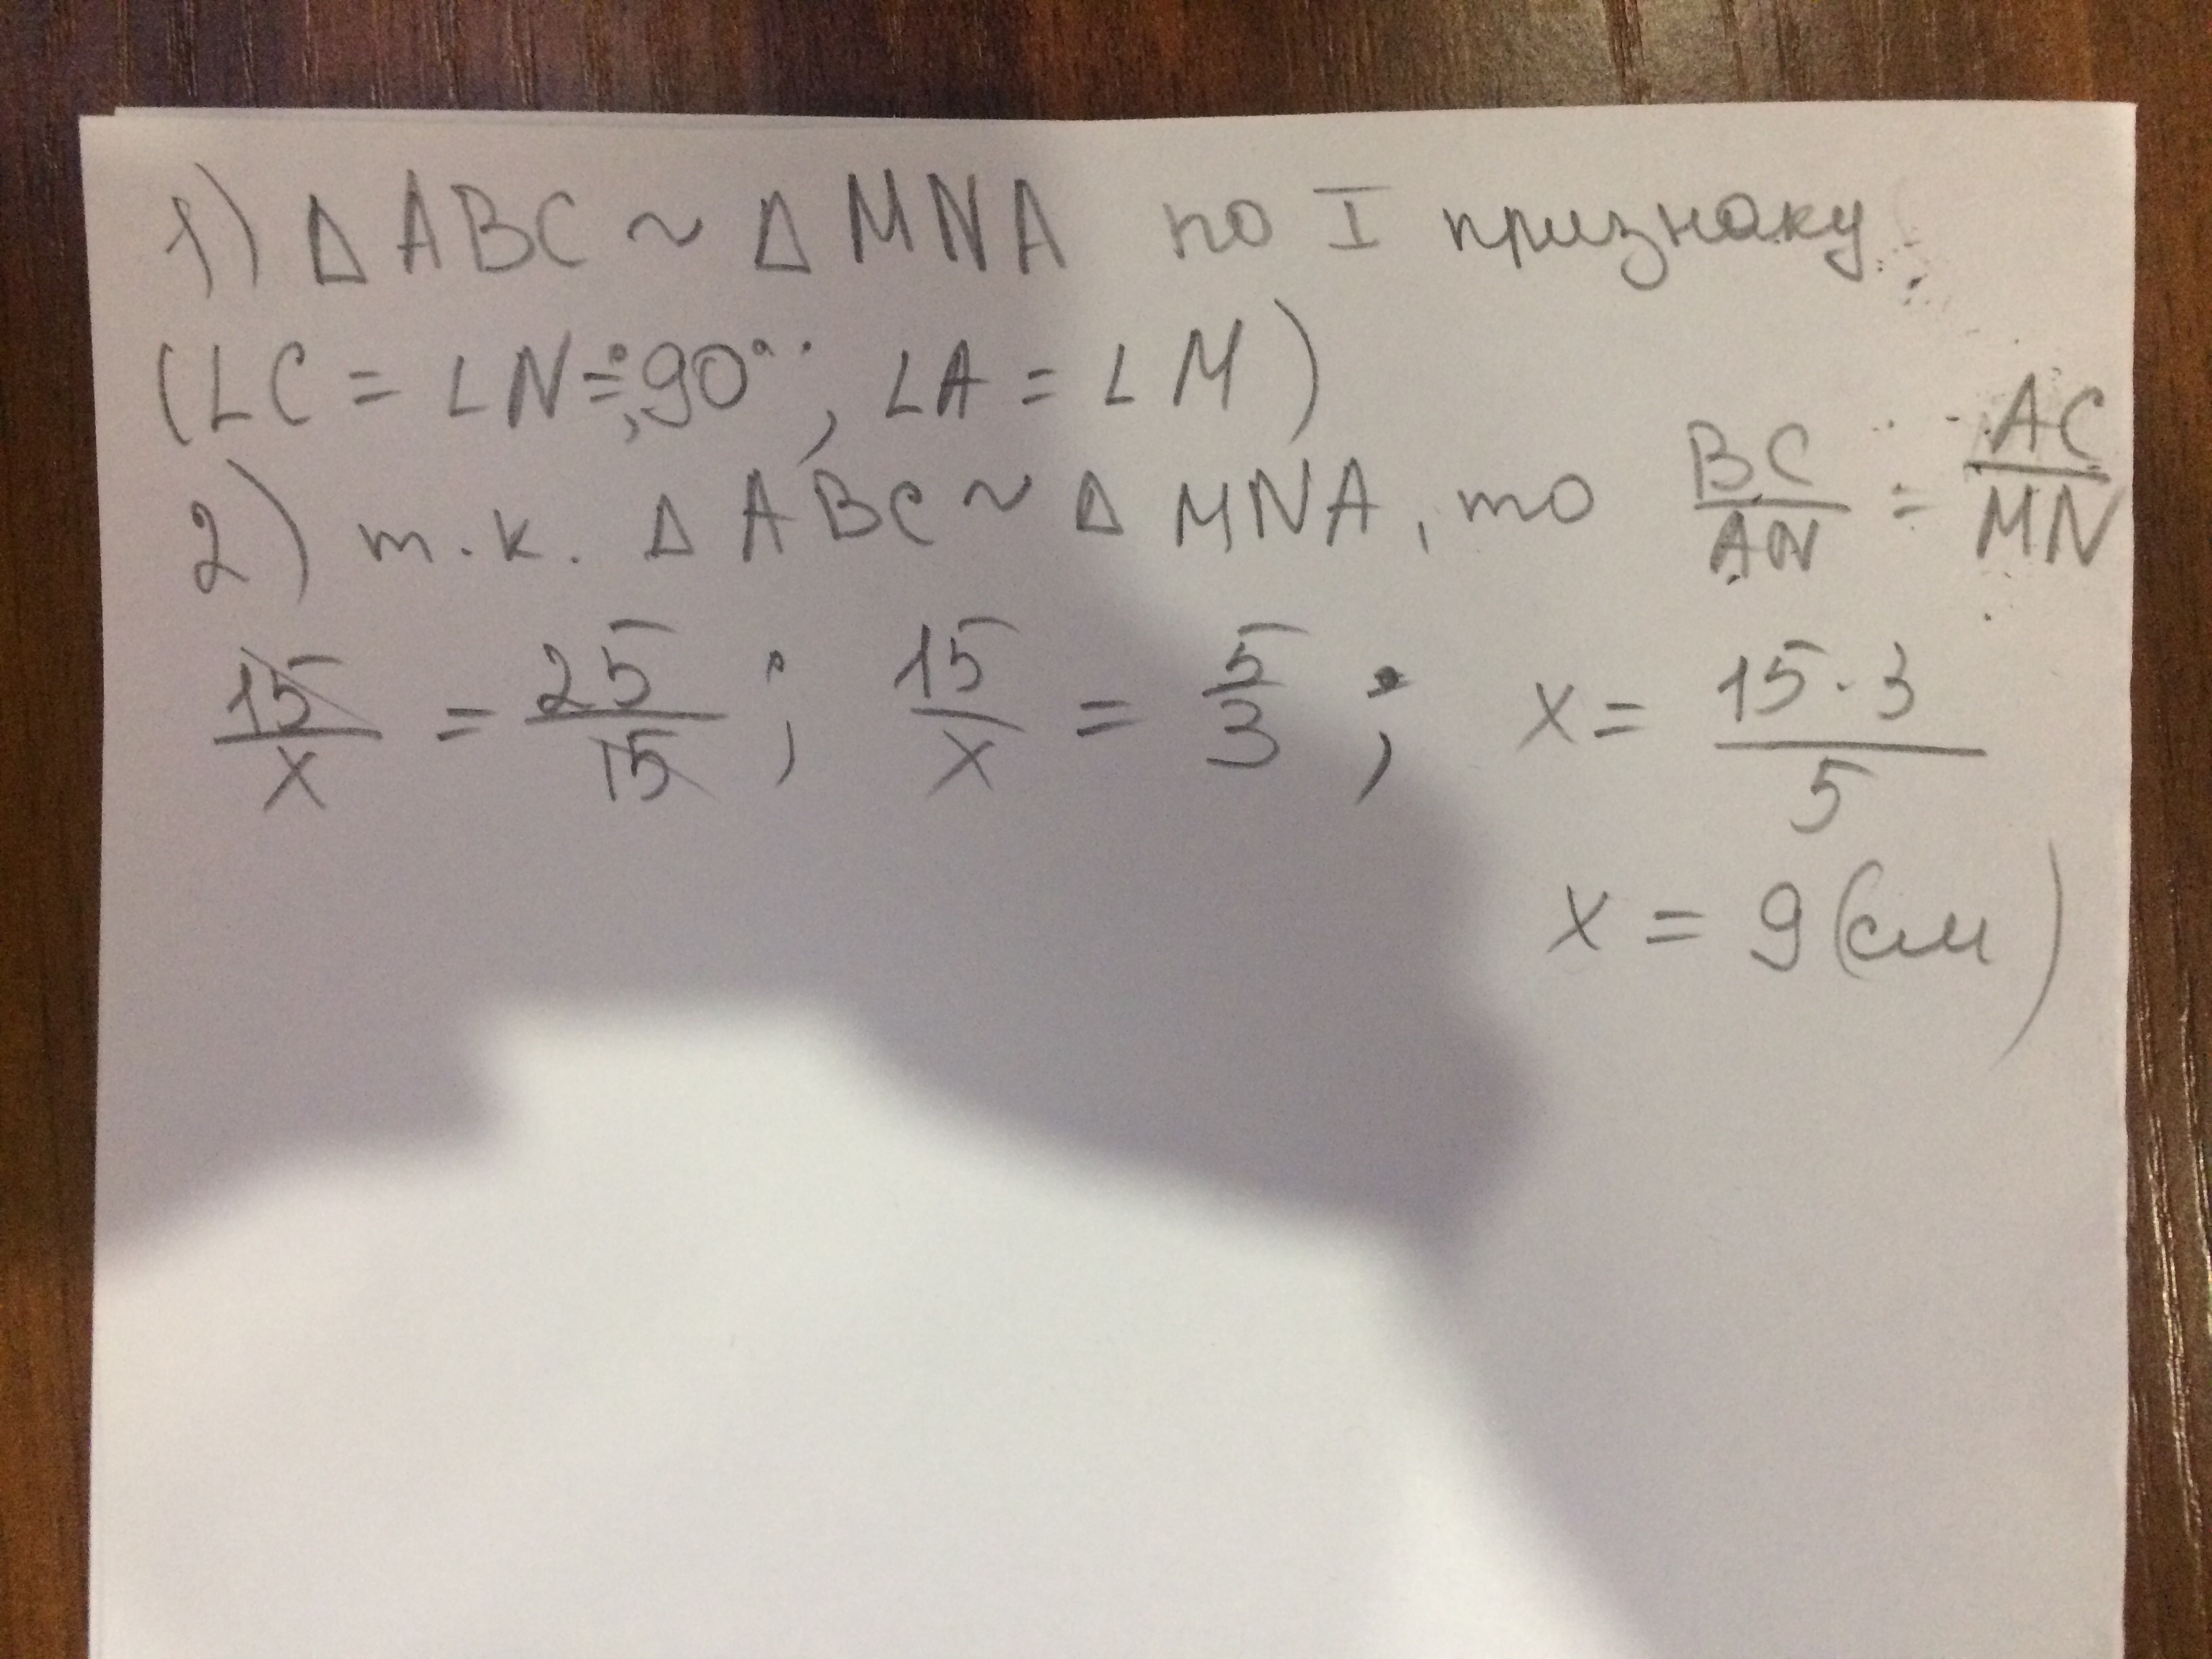 1) Δ ABC ~ Δ MNA по I признаку
(∠C = ∠N = 90°, ∠A = ∠M)
2) т.к. Δ ABC ~ Δ MNA, то BC/AN = AC/MN
15/x = 25/15 ; 15/x = 5/3 ; x = 15·3/5
x = 9 (см)